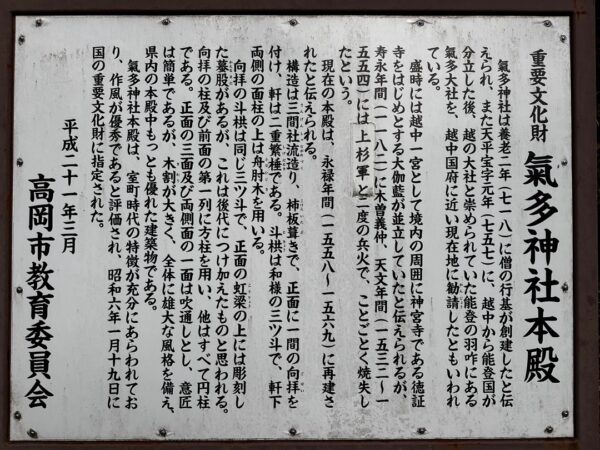 重要文化財 氣多神社本殿
氣多神社は養老二年（七一八）に僧の行基が創建したと伝
えられ、また天平宝字元年（七五七）に、越中から能登国が
分立した後、越の大社と崇められていた能登の羽咋にある
氣多大社を、越中国府に近い現在地に勧請したともいわれ
ている。
盛時には越中一宮として境内の周囲に神宮寺である徳証
寺をはじめとする大伽藍が並立していたと伝えられるが、
寿永年間（一一八二）に木曽義仲、天文年間（一五三二〜一
五五四）には上杉軍と二度の兵火で、ことごとく焼失し
たという。
現在の本殿は、永禄年間（一五五八〜一五六九）に再建さ
れたと伝えられる。
構造は三間社流造り、杮板葺きで、正面に一間の向拝を
付け、軒は二重繁棰である。斗栱は和様の三ツ斗で、軒下
両側の面柱の上は舟肘木を用いる。
向拝の斗栱は同じ三ツ斗で、正面の虹梁の上には彫刻し
た蟇股があるが、これは後代につけ加えたものと思われる。
向拝の柱及び前面の第一列に方柱を用い、他はすべて円柱
である。正面の三面及び両側面の一面は吹通しとし、意匠
は簡単であるが、木割が大きく、全体に雄大な風格を備え、
県内の本殿中もっとも優れた建築物である。
氣多神社本殿は、室町時代の特徴が充分にあらわれてお
り、作風が優秀であると評価され、昭和六年一月十九日に
国の重要文化財に指定された。
平成二十一年三月
高岡市教育委員会